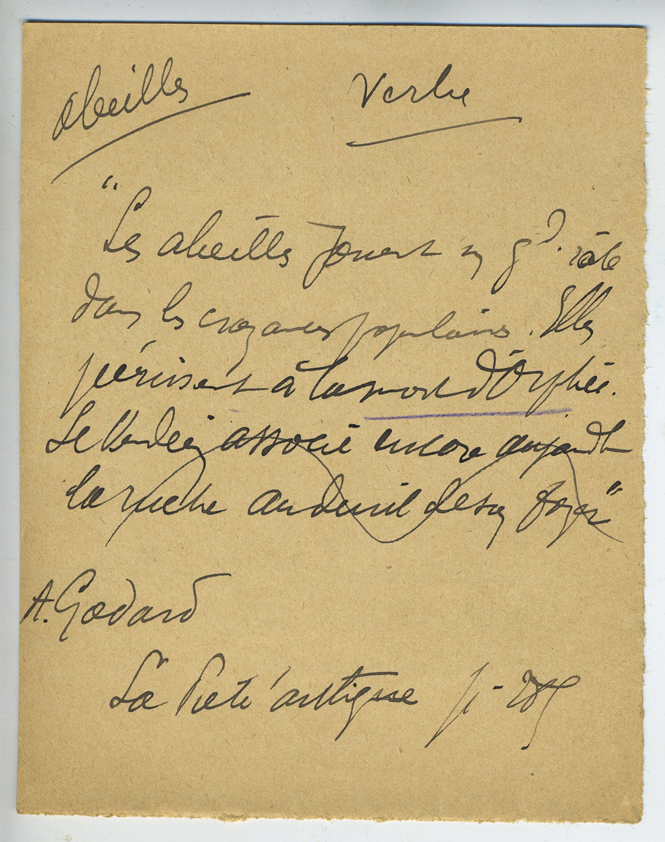 Abeilles Verbe
"Les abeilles jouent un gd. rôle
dans les croyances populaires. Elles
périssent à la mort d'Orphée.
Le Vendéen associe encore aujourd'h
la ruche au deuil de son foyer"
A. Godard
La Piété antique p.